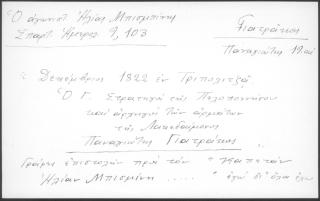 Ὁ ἀγωνιστ Ἠλίας Μπισμπίνης
Σπαρτ. Ἥμερο 9, 103
Γιατράκος
Παναγιώτης
Δεκέμβριος 1822 ἐν Τριπολιτζᾷ
Ὁ Γ. Στρατηγὸ τῆς Πελοποννήσου
καὶ ἀρχηγὸ τῶν ἁρμάτων
τῆς Λακεδαίμονος
Παναγιώτης Γιατράκος
Γράφει ἐπιστολὴν πρὸ τὸν "καπετὰν
Ἠλίαν Μπισμίνη ..... " ἐγὼ δι' ὅλα